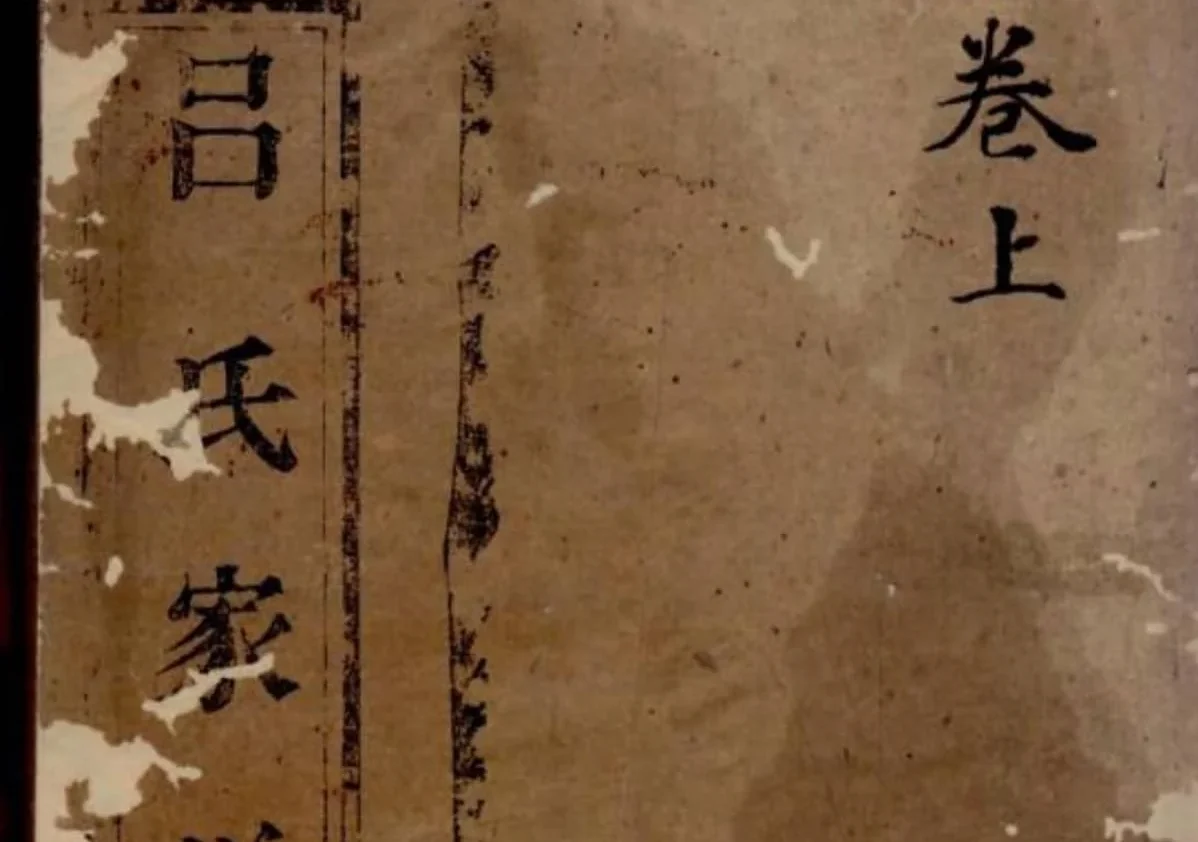 卷上
吕氏家